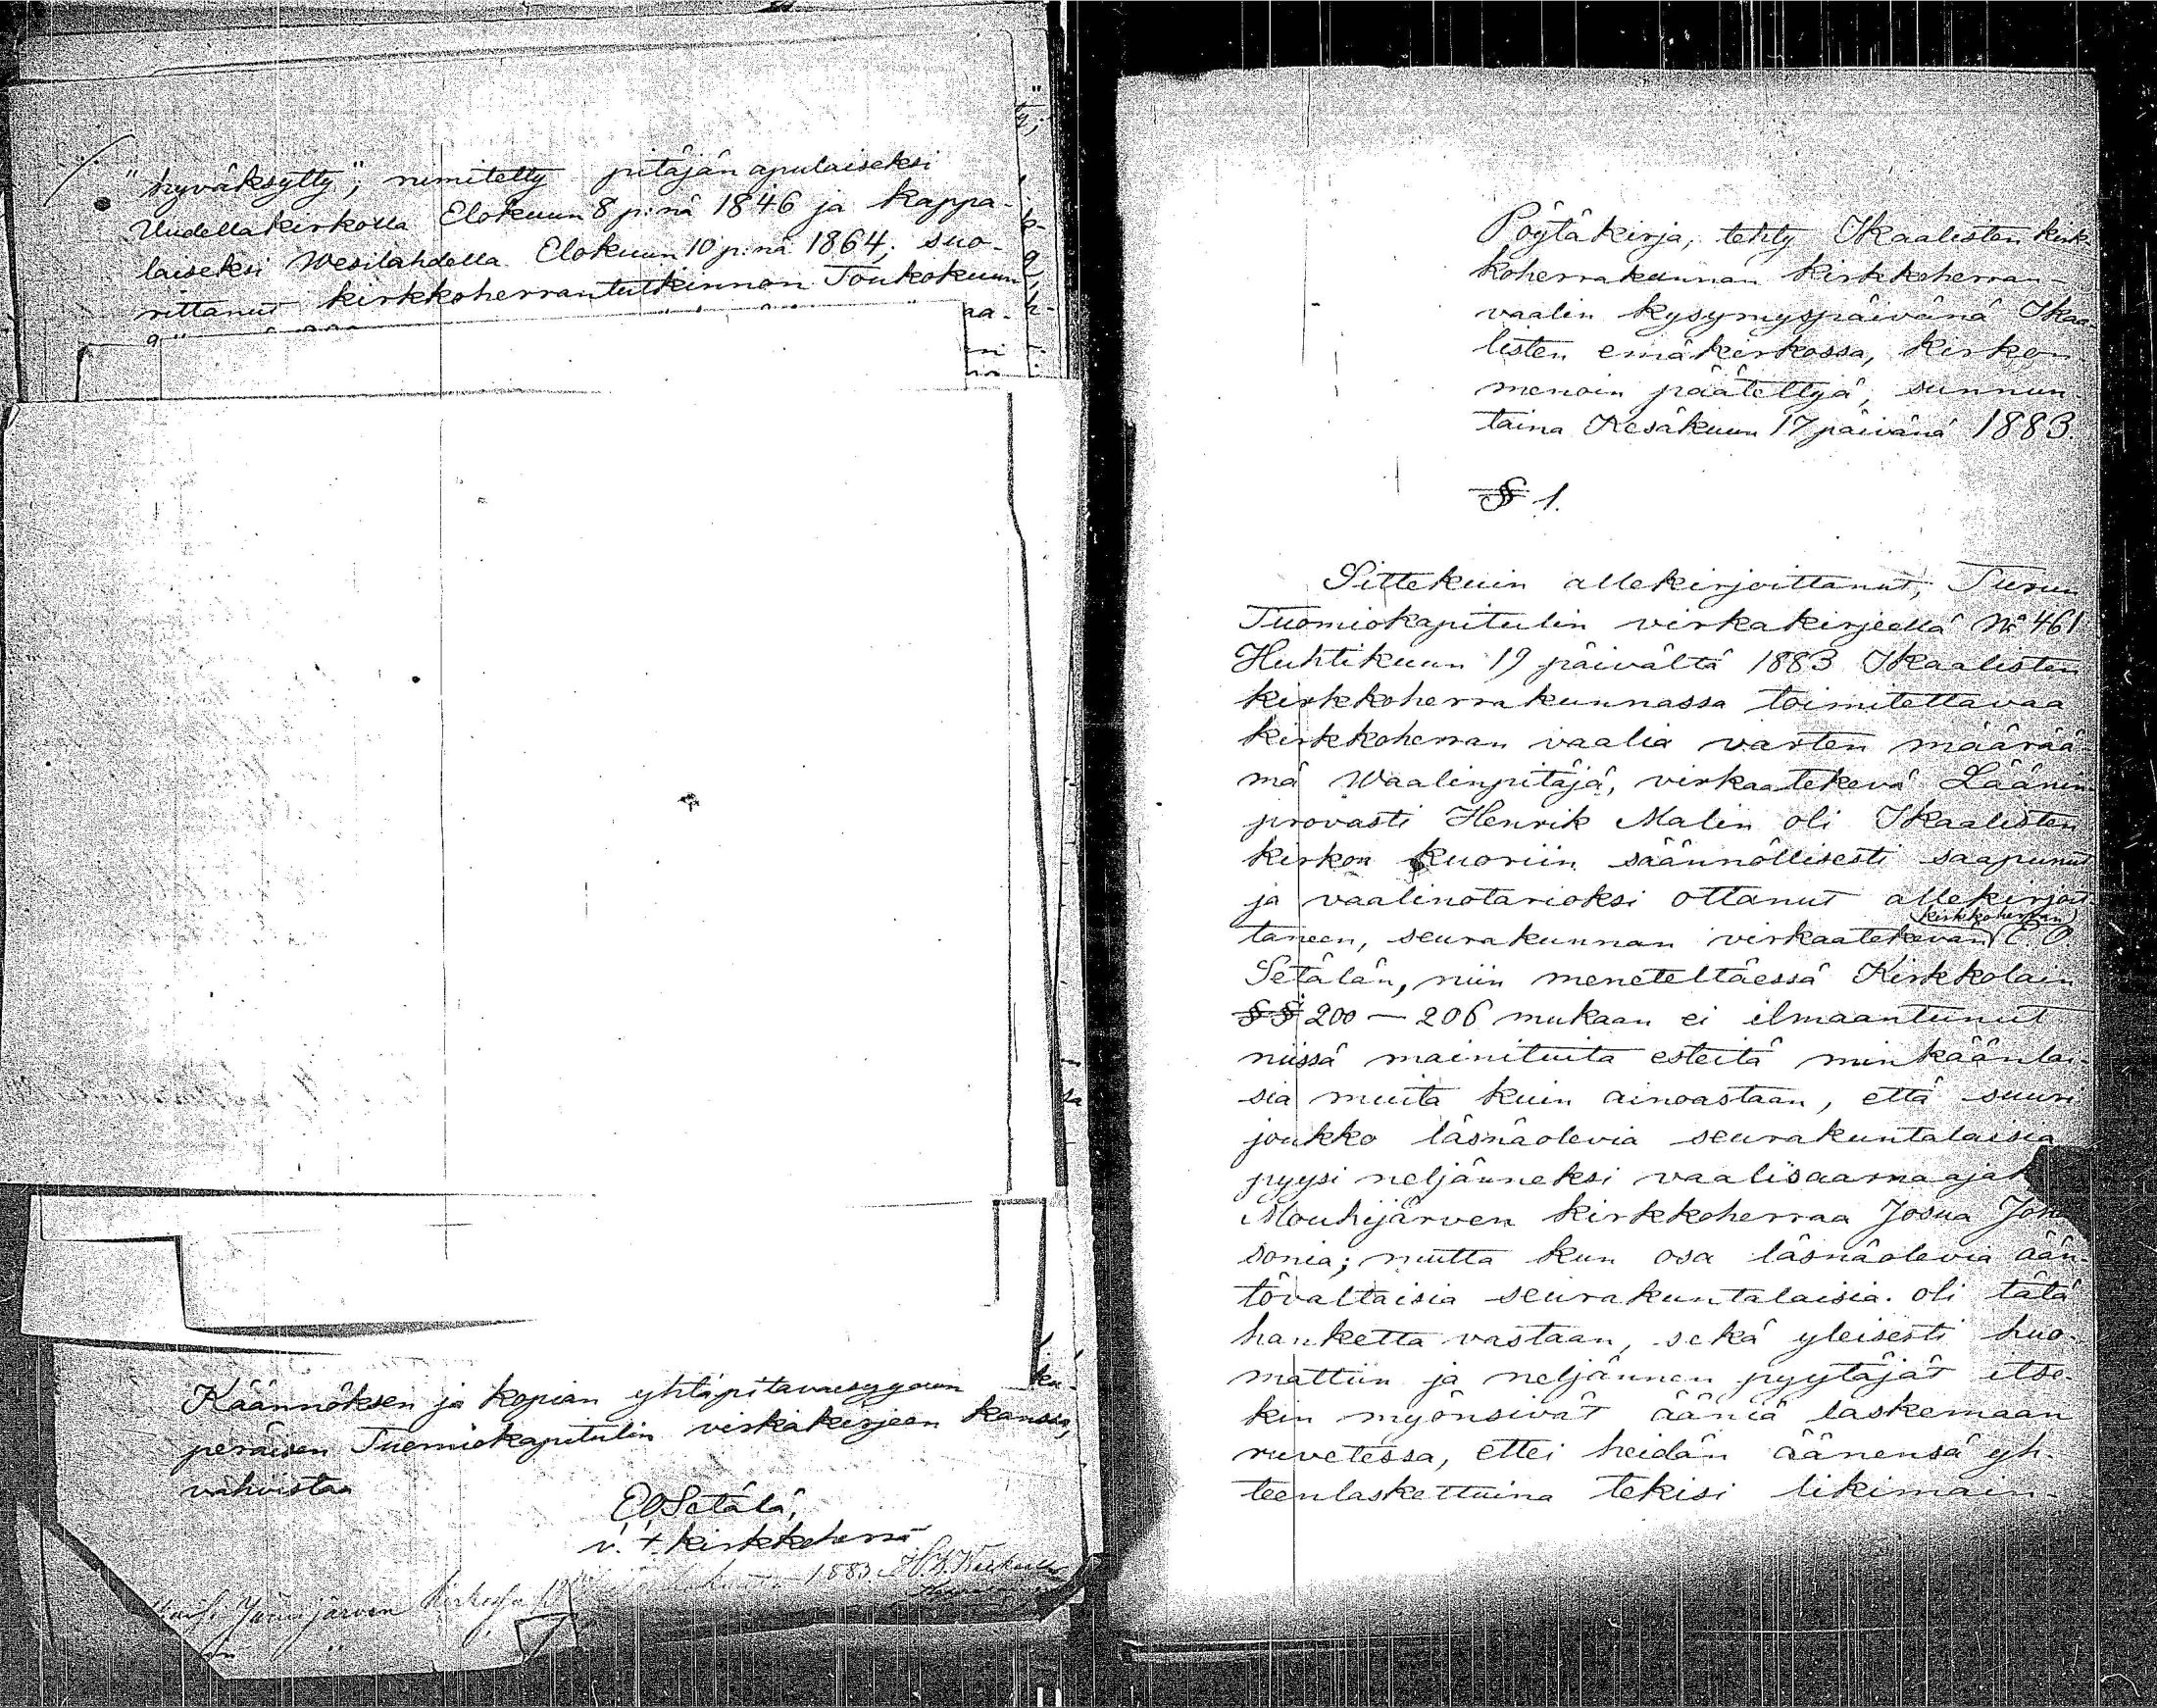 "hyväksytty"; nimitetty pitäjän apulaiseksi
Uudellakirkolla Elokuun 8 p:nä 1846 ja kappa-
laiseksi Wesilahdella Elokuun 10 p:nä 1864; suo-
rittanut kirkkoherrantutkinnon Toukokuun
Käännöksen ja kopian yhtäpitäväisyyden
peräisen Tuomiokapitulin virkakirjeen kanssa,
vahvistaa
EOSetälä,
v. t. kirkkoherra
Jämijärven kirkossa 1883.
Pöytäkirja, tehty Ikaalisten kirk-
koherrakunnan kirkkoherran-
vaalin kysymyspäivänä Ikaa-
listen emäkirkossa, kirkon-
menoin päätettyä, sunnun-
taina Kesäkuun 17 päivänä 1883.
§ 1.
Sittekuin allekirjoittanut, Turun
Tuomiokapitulin virkakirjeellä No 461
Huhtikuun 19 päivältä 1883 Ikaalisten
kirkkoherrakunnassa toimitettavaa
kirkkoherran vaalia varten määrää-
mä Waalinpitäjä, virkaatekevä Läänin-
provasti Henrik Malin oli Ikaalisten
kirkon kuoriin säännöllisesti saapunut
ja vaalinotarioksi ottanut allekirjoit-
taneen, seurakunnan virkaatekevän kirkkoherran E. O.
Setälän, niin meneteltäessä Kirkkolain
§§ 200 — 206 mukaan ei ilmaantunut
niissä mainituita esteitä minkäänlai-
sia muita kuin ainoastaan, että suuri
joukko läsnäolevia seurakuntalaisia
pyysi neljänneksi vaalisaarnaajak
Mouhijärven kirkkoherraa Josua Joh
sonia; mutta kun osa läsnäolevia ään-
tövaltaisia seurakuntalaisia oli tätä
hanketta vastaan, sekä yleisesti huo-
mattiin ja neljännen pyytäjät itse-
kin myönsivät ääniä laskemaan
ruvetessa, ettei heidän äänensä yh-
teenlaskettuina tekisi likimain-